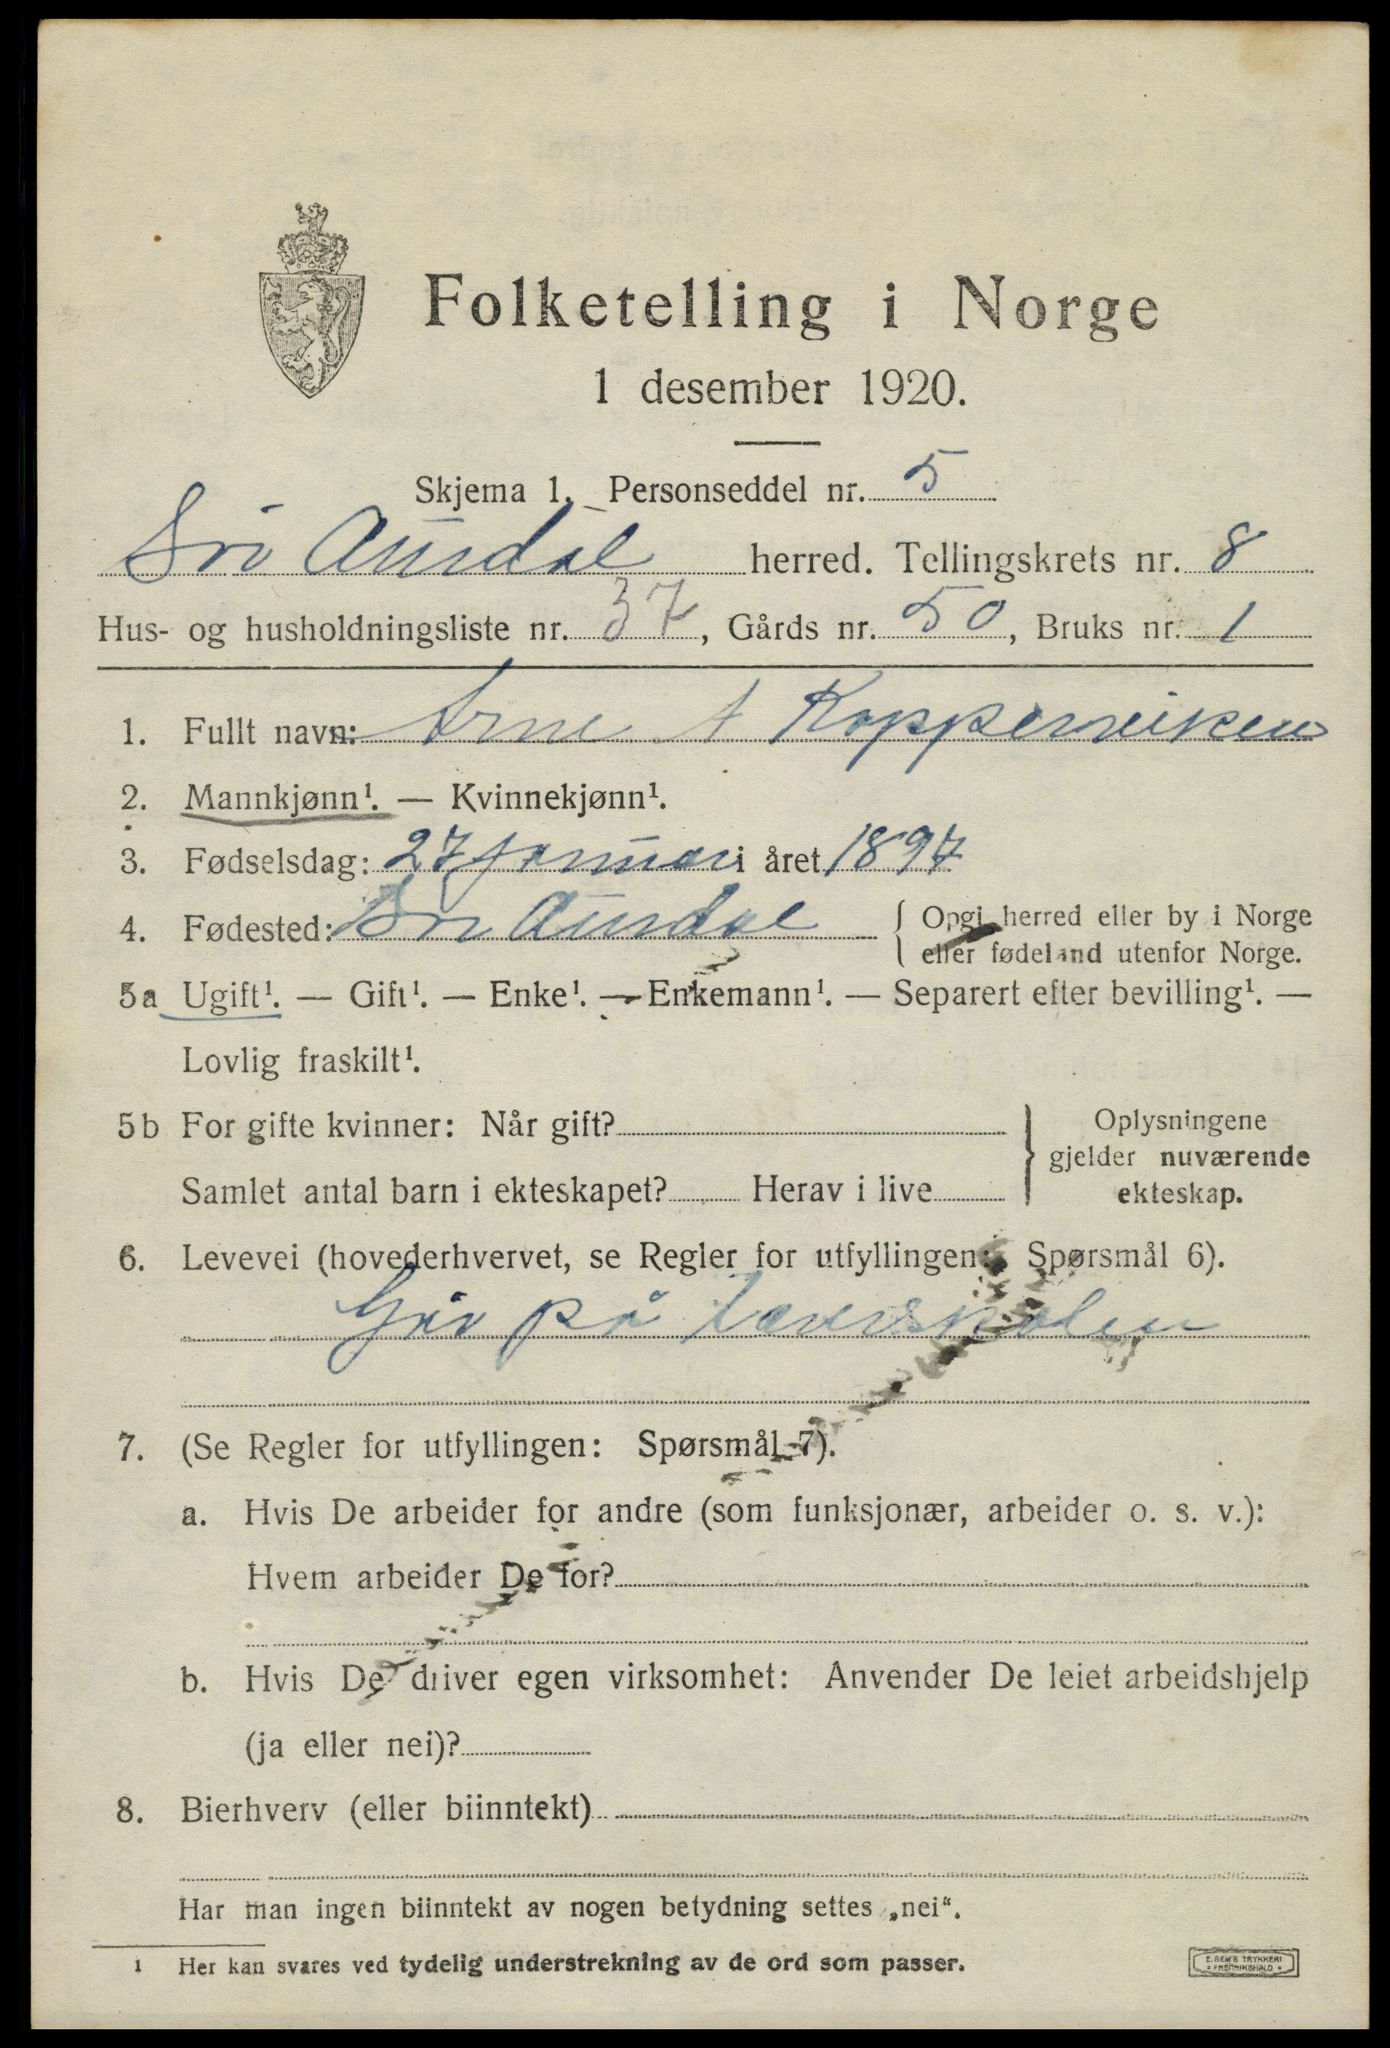 Folketelling i Norge
1 desember 1920.
Skjema 1. Personseddel nr. 5
Sør Aurdal herred. Tellingskrets nr. 8
Hus- og husholdningsliste nr. 37, Gårds nr. 50, Bruks nr. 1
1. Fullt navn: Arne A Kopperviken
2. Mannkjønn¹. — Kvinnekjønn¹.
3. Fødselsdag: 27 januar i året 1897
4. Fødested: Sør Aurdal { Opgi herred eller by i Norge
eller fødeland utenfor Norge.
5a Ugift¹. — Gift¹. — Enke¹. — Enkemann¹. — Separert efter bevilling¹. —
Lovlig fraskilt¹.
5b For gifte kvinner: Når gift?
Samlet antal barn i ekteskapet? Herav i live
} Oplysningene
gjelder nuværende
ekteskap.
6. Levevei (hovederhvervet, se Regler for utfyllingen: Spørsmål 6).
Går på Lærerskolen
7. (Se Regler for utfyllingen: Spørsmål 7).
a. Hvis De arbeider for andre (som funksjonær, arbeider o. s. v.):
Hvem arbeider De for?
b. Hvis De driver egen virksomhet: Anvender De leiet arbeidshjelp
(ja eller nei)?
8. Bierhverv (eller biinntekt)
Har man ingen biinntekt av nogen betydning settes „nei“.
1 Her kan svares ved tydelig understrekning av de ord som passer.
E. SEM'S TRYKKERI
• FREDRIKSHALD •